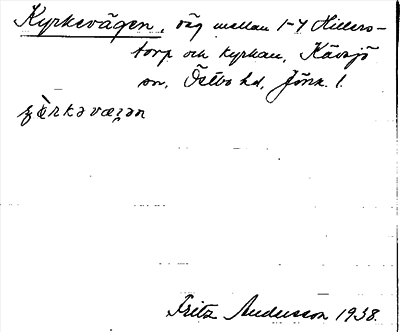 Kyrkevägen, väg mellan 1-4 Hillers-
torp och kyrkan, Kävsjö
sn, Östbo hd, Jönk. l.
Fritz Andersson 1938.